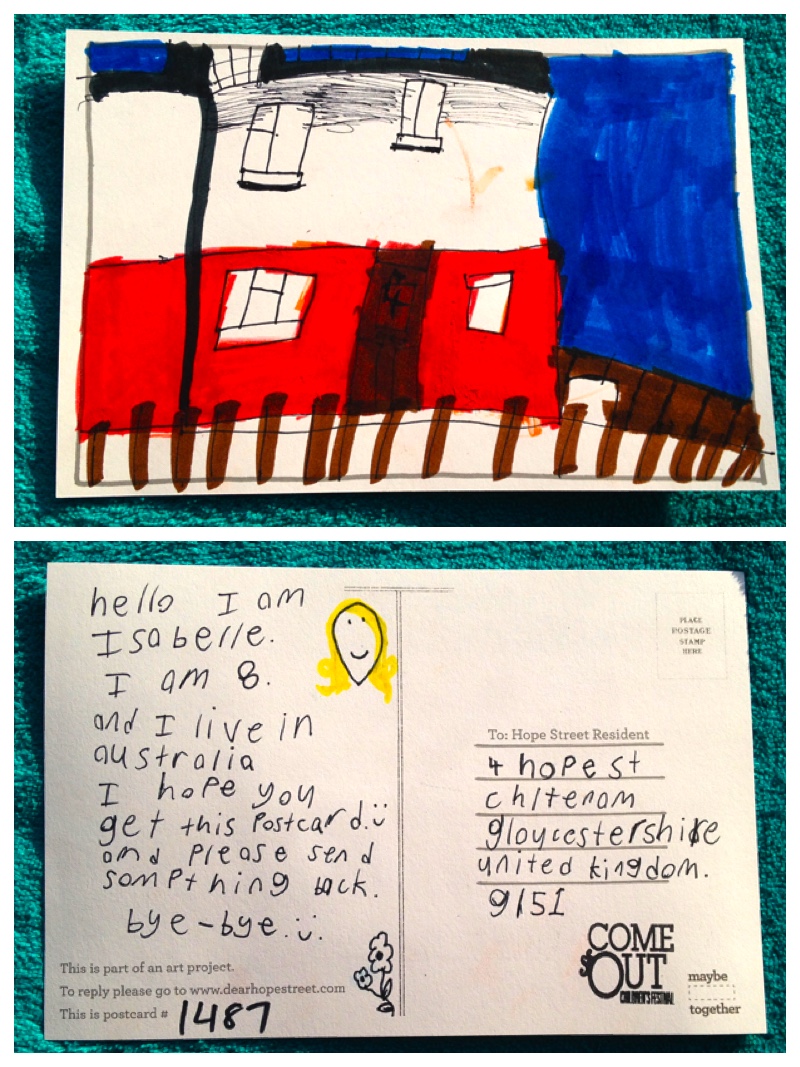 4
hello I am
Isabelle.
I am 8.
and I live in
australia
I hope you
get this Postcard.
and Please send
sompthing back.
bye-bye.
This is part of an art project.
To reply please go to www.dearhopestreet.com
This is postcard # 1487
PLACE
POSTAGE
STAMP
HERE
To: Hope Street Resident
4 hope st
chltenam
gloucestershire
united kingdom.
gl51
COME
OUT
CHILDREN'S FESTIVAL
maybe
together